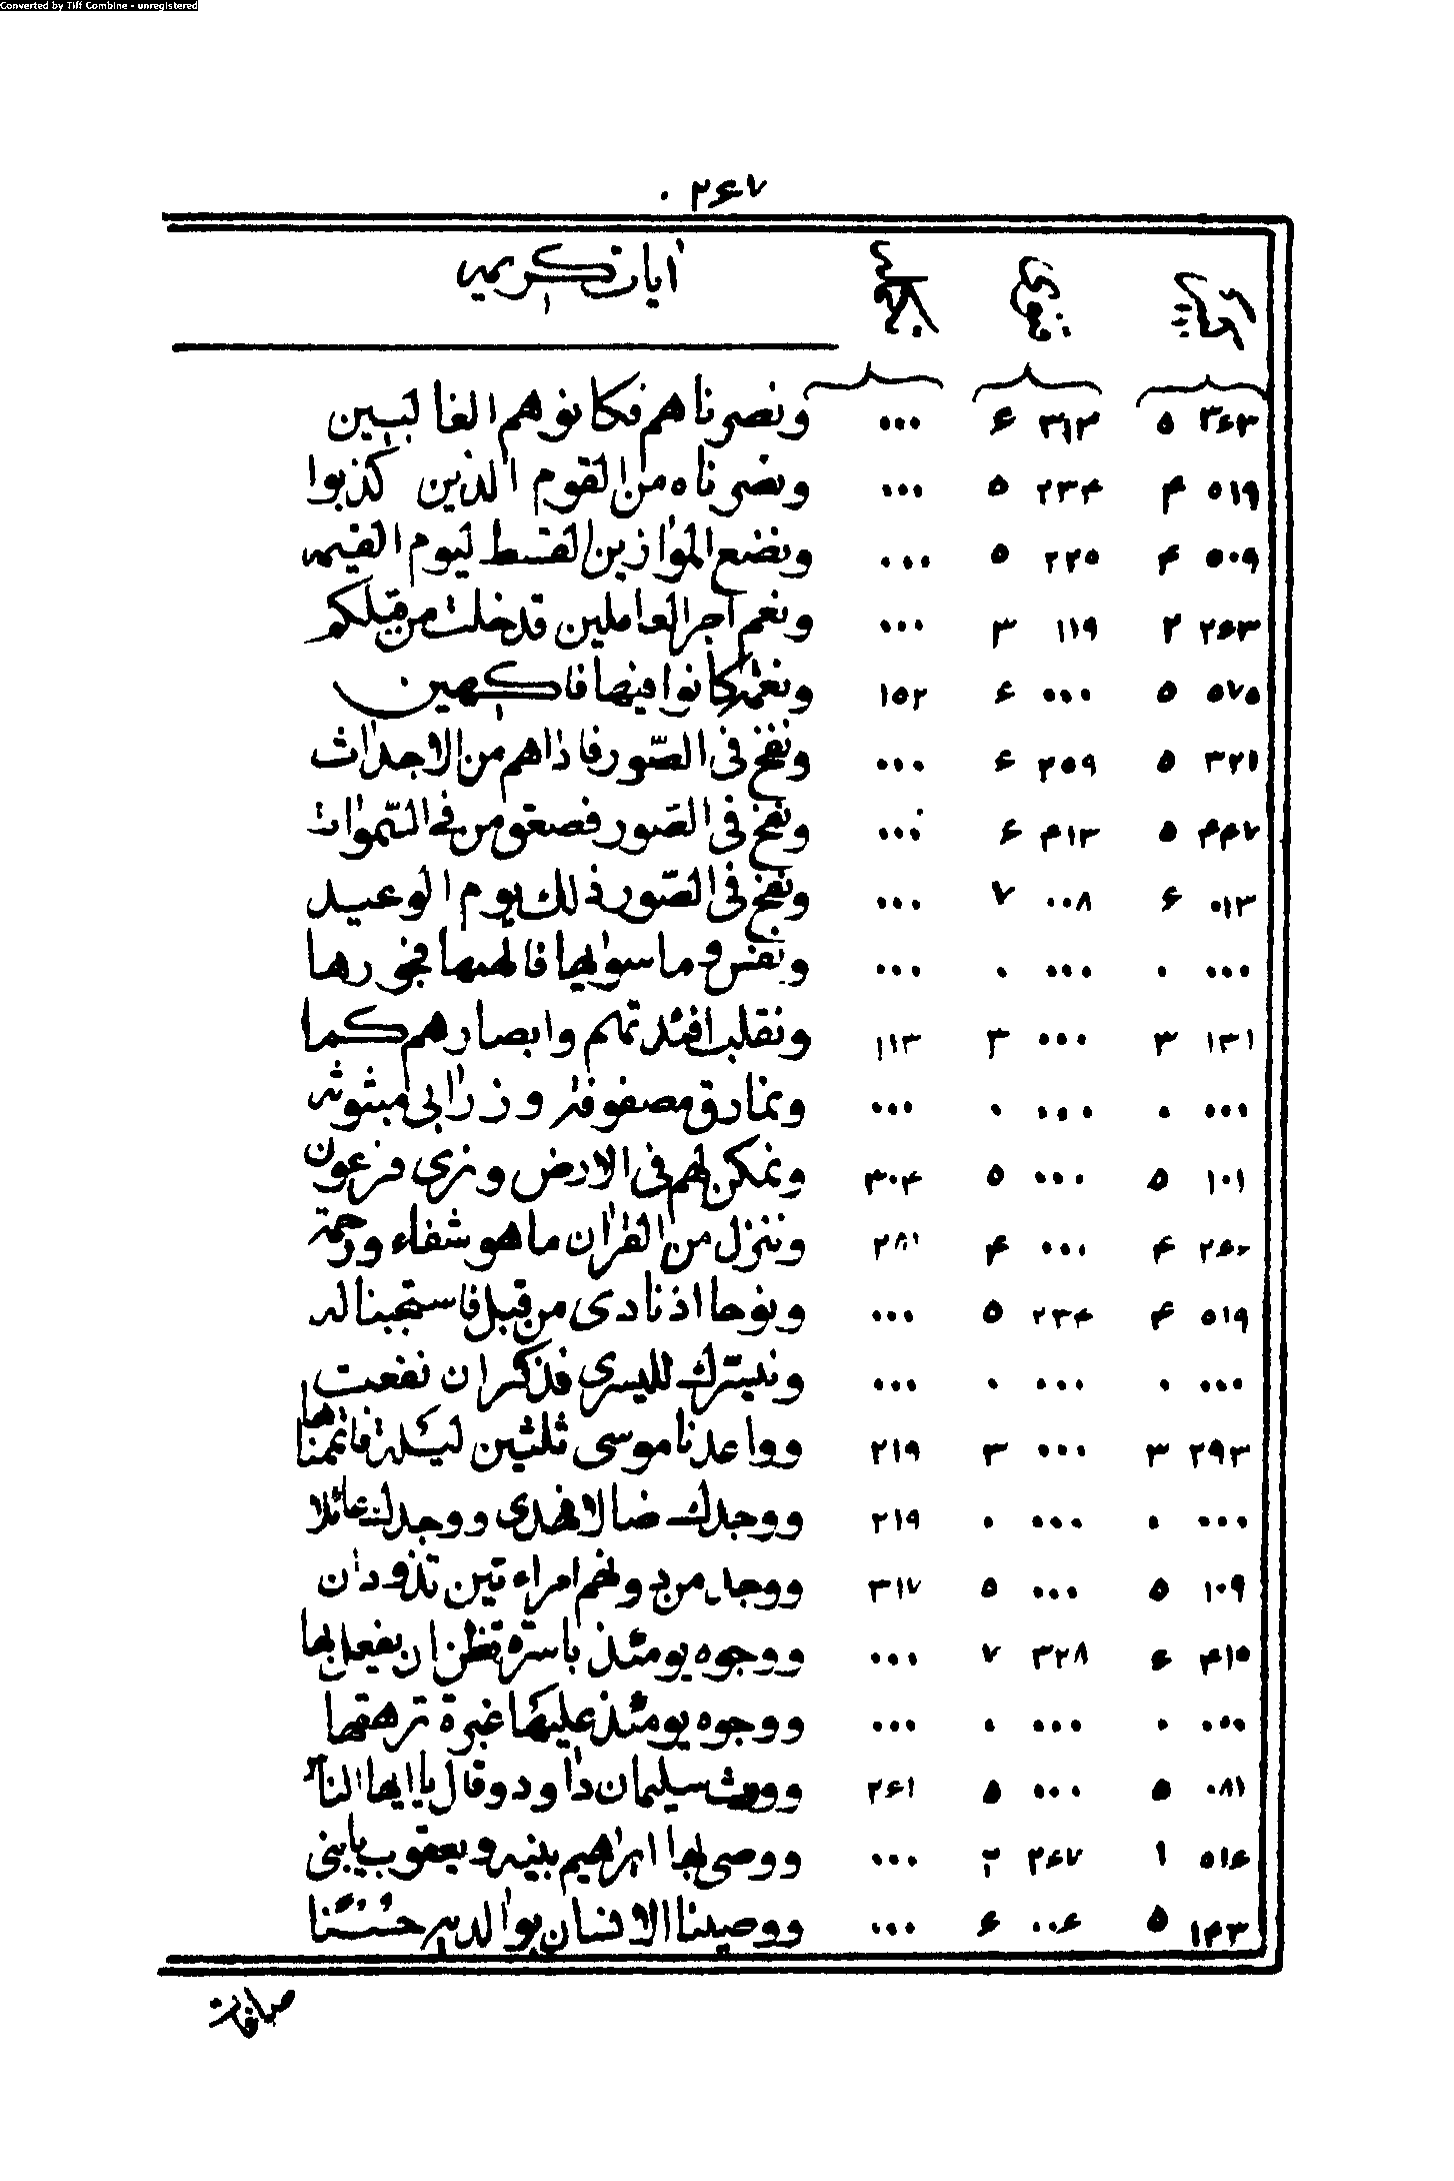 Converted by Tiff Combine - unregistered
۲۶۷
آیات کریمه
۳۶۳ ۵ ۳۱۳ ۶ ۰۰۰ ونصرناهم فكانوهم الغالبين
۵۱۹ ۴ ۲۳۴ ۵ ۰۰۰ ونصرناه من القوم الذين كذبوا
۵۰۹ ۴ ۲۲۵ ۵ ۰۰۰ ونضع الموازين القسط ليوم القيمه
۲۶۳ ۲ ۱۱۹ ۳ ۰۰۰ ونعم اجر العاملين قد خلت من قبلكم
۵۷۵ ۵ ۰۰۰ ۶ ۱۵۲ ونعمة كانوا فيها فاكهين
۳۲۱ ۵ ۲۵۹ ۶ ۰۰۰ ونفخ فى الصّور فاذاهم من الاجداث
۴۴۷ ۵ ۴۱۳ ۶ ۰۰۰ ونفخ فى الصّور فصعق من فى السّموات
۰۱۳ ۶ ۰۰۸ ۷ ۰۰۰ ونفخ فى الصّور ذلك يوم الوعيد
۰۰۰ ۰ ۰۰۰ ۰ ۰۰۰ ونفس وماسواها فالهمها فجورها
۱۳۱ ۳ ۰۰۰ ۳ ۱۱۳ ونقلب افئدتهم وابصارهم كما
۰۰۰ ۰ ۰۰۰ ۰ ۰۰۰ ونمارق مصفوفة وزرابى مبثوثه
۱۰۱ ۵ ۰۰۰ ۵ ۳۰۴ ونمكن لهم فى الارض ونرى فرعون
۲۶۲ ۴ ۰۰۰ ۴ ۲۸۱ وننزل من القران ماهو شفاء ورحمة
۵۱۹ ۴ ۲۳۴ ۵ ۰۰۰ ونوحا اذنادى من قبل فاستجبنا له
۰۰۰ ۰ ۰۰۰ ۰ ۰۰۰ ونيسّرك لليسرى فذكر ان نفعت
۲۹۳ ۳ ۰۰۰ ۳ ۲۱۹ وواعدنا موسى ثلثين ليلة فاتممناها
۰۰۰ ۰ ۰۰۰ ۰ ۲۱۹ ووجدك ضالا فهدى ووجدك عائلا
۱۰۹ ۵ ۰۰۰ ۵ ۳۱۷ ووجد من دونهم امراءتين تذودان
۴۱۵ ۶ ۳۲۸ ۷ ۰۰۰ ووجوه يومئذ باسرة تظن ان يفعل بها
۰۰۰ ۰ ۰۰۰ ۰ ۰۰۰ ووجوه يومئذ عليها غبرة ترهقها
۰۸۱ ۵ ۰۰۰ ۵ ۲۶۱ وورث سليمان داود وقال ياايها الناس
۵۱۶ ۱ ۲۶۷ ۲ ۰۰۰ ووصى بها ابراهيم بنيه ويعقوب يابنى
۱۴۳ ۵ ۰۰۶ ۶ ۰۰۰ ووصينا الانسان بوالديه حسنا
صافات